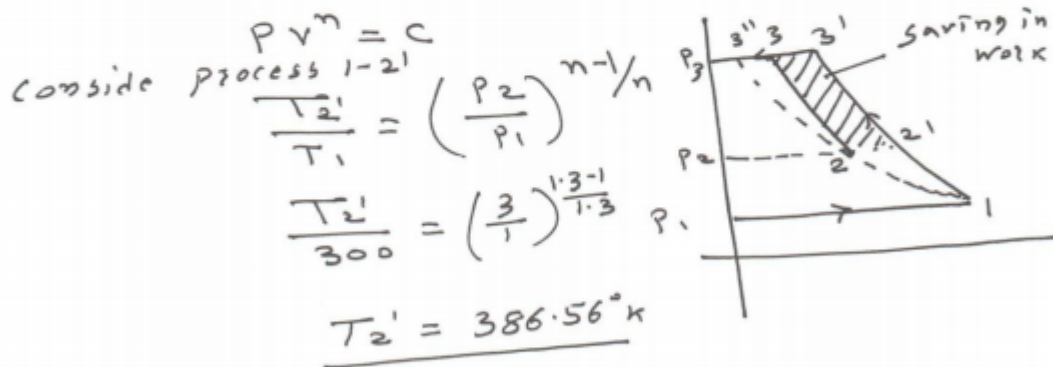 P v^n = C
Conside process 1-2'
T2' / T1 = ( P2 / P1 )^n-1/n
T2' / 300 = ( 3 / 1 )^1.3-1/1.3
T2' = 386.56°K
saving in
work
P3 3" 3 3'
P2 2 2'
P1 1